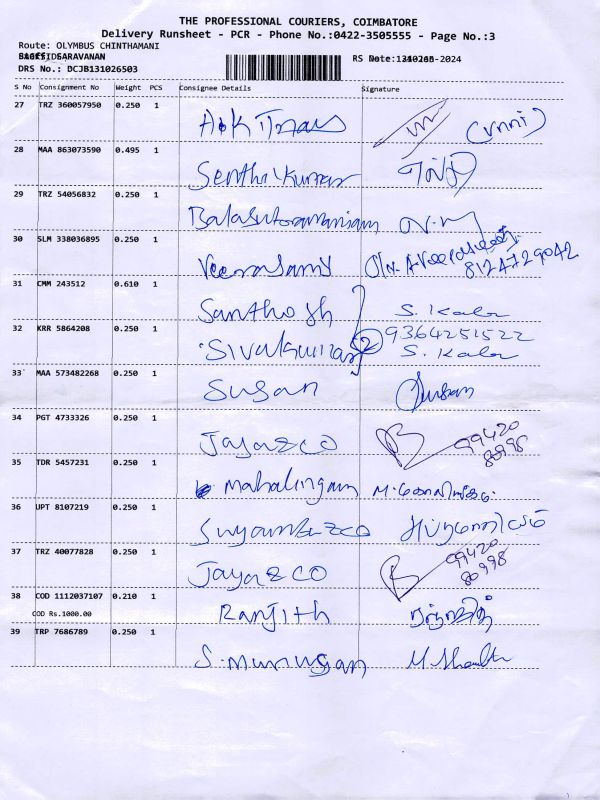 THE PROFESSIONAL COURIERS, COIMBATORE
Delivery Runsheet - PCR - Phone No.:0422-3505555 - Page No.:3
Route: OLYMBUS CHINTHAMANI
SARAVANAN
DRS No.: DCJB131026503
S No Consignment No Weight PCS Consignee Details Signature
27 TRZ 360057950 0.250 1 (unni)
28 MAA 863073590 0.495 1 Senthilkumar
29 TRZ 54056832 0.250 1 Balasubramaniam
30 SLM 338036895 0.250 1 Veerasami 8124729042
31 CMM 243512 0.610 1 Santhosh S. Kala
9364251522
32 KRR 5864208 0.250 1 Sivakumar 2 S. Kala
33 MAA 573482268 0.250 1 Susan Susan
34 PGT 4733326 0.250 1 Jaya & co 99420 80998
35 TDR 5457231 0.250 1 Mahalingam
36 UPT 8107219 0.250 1 Suyambu & co
37 TRZ 40077828 0.250 1 Jaya & co 99420 80998
38 COD 1112037107 0.210 1 Ranjith ரஞ்ஜித்
COD Rs.1000.00
39 TRP 7686789 0.250 1 S. Murugan